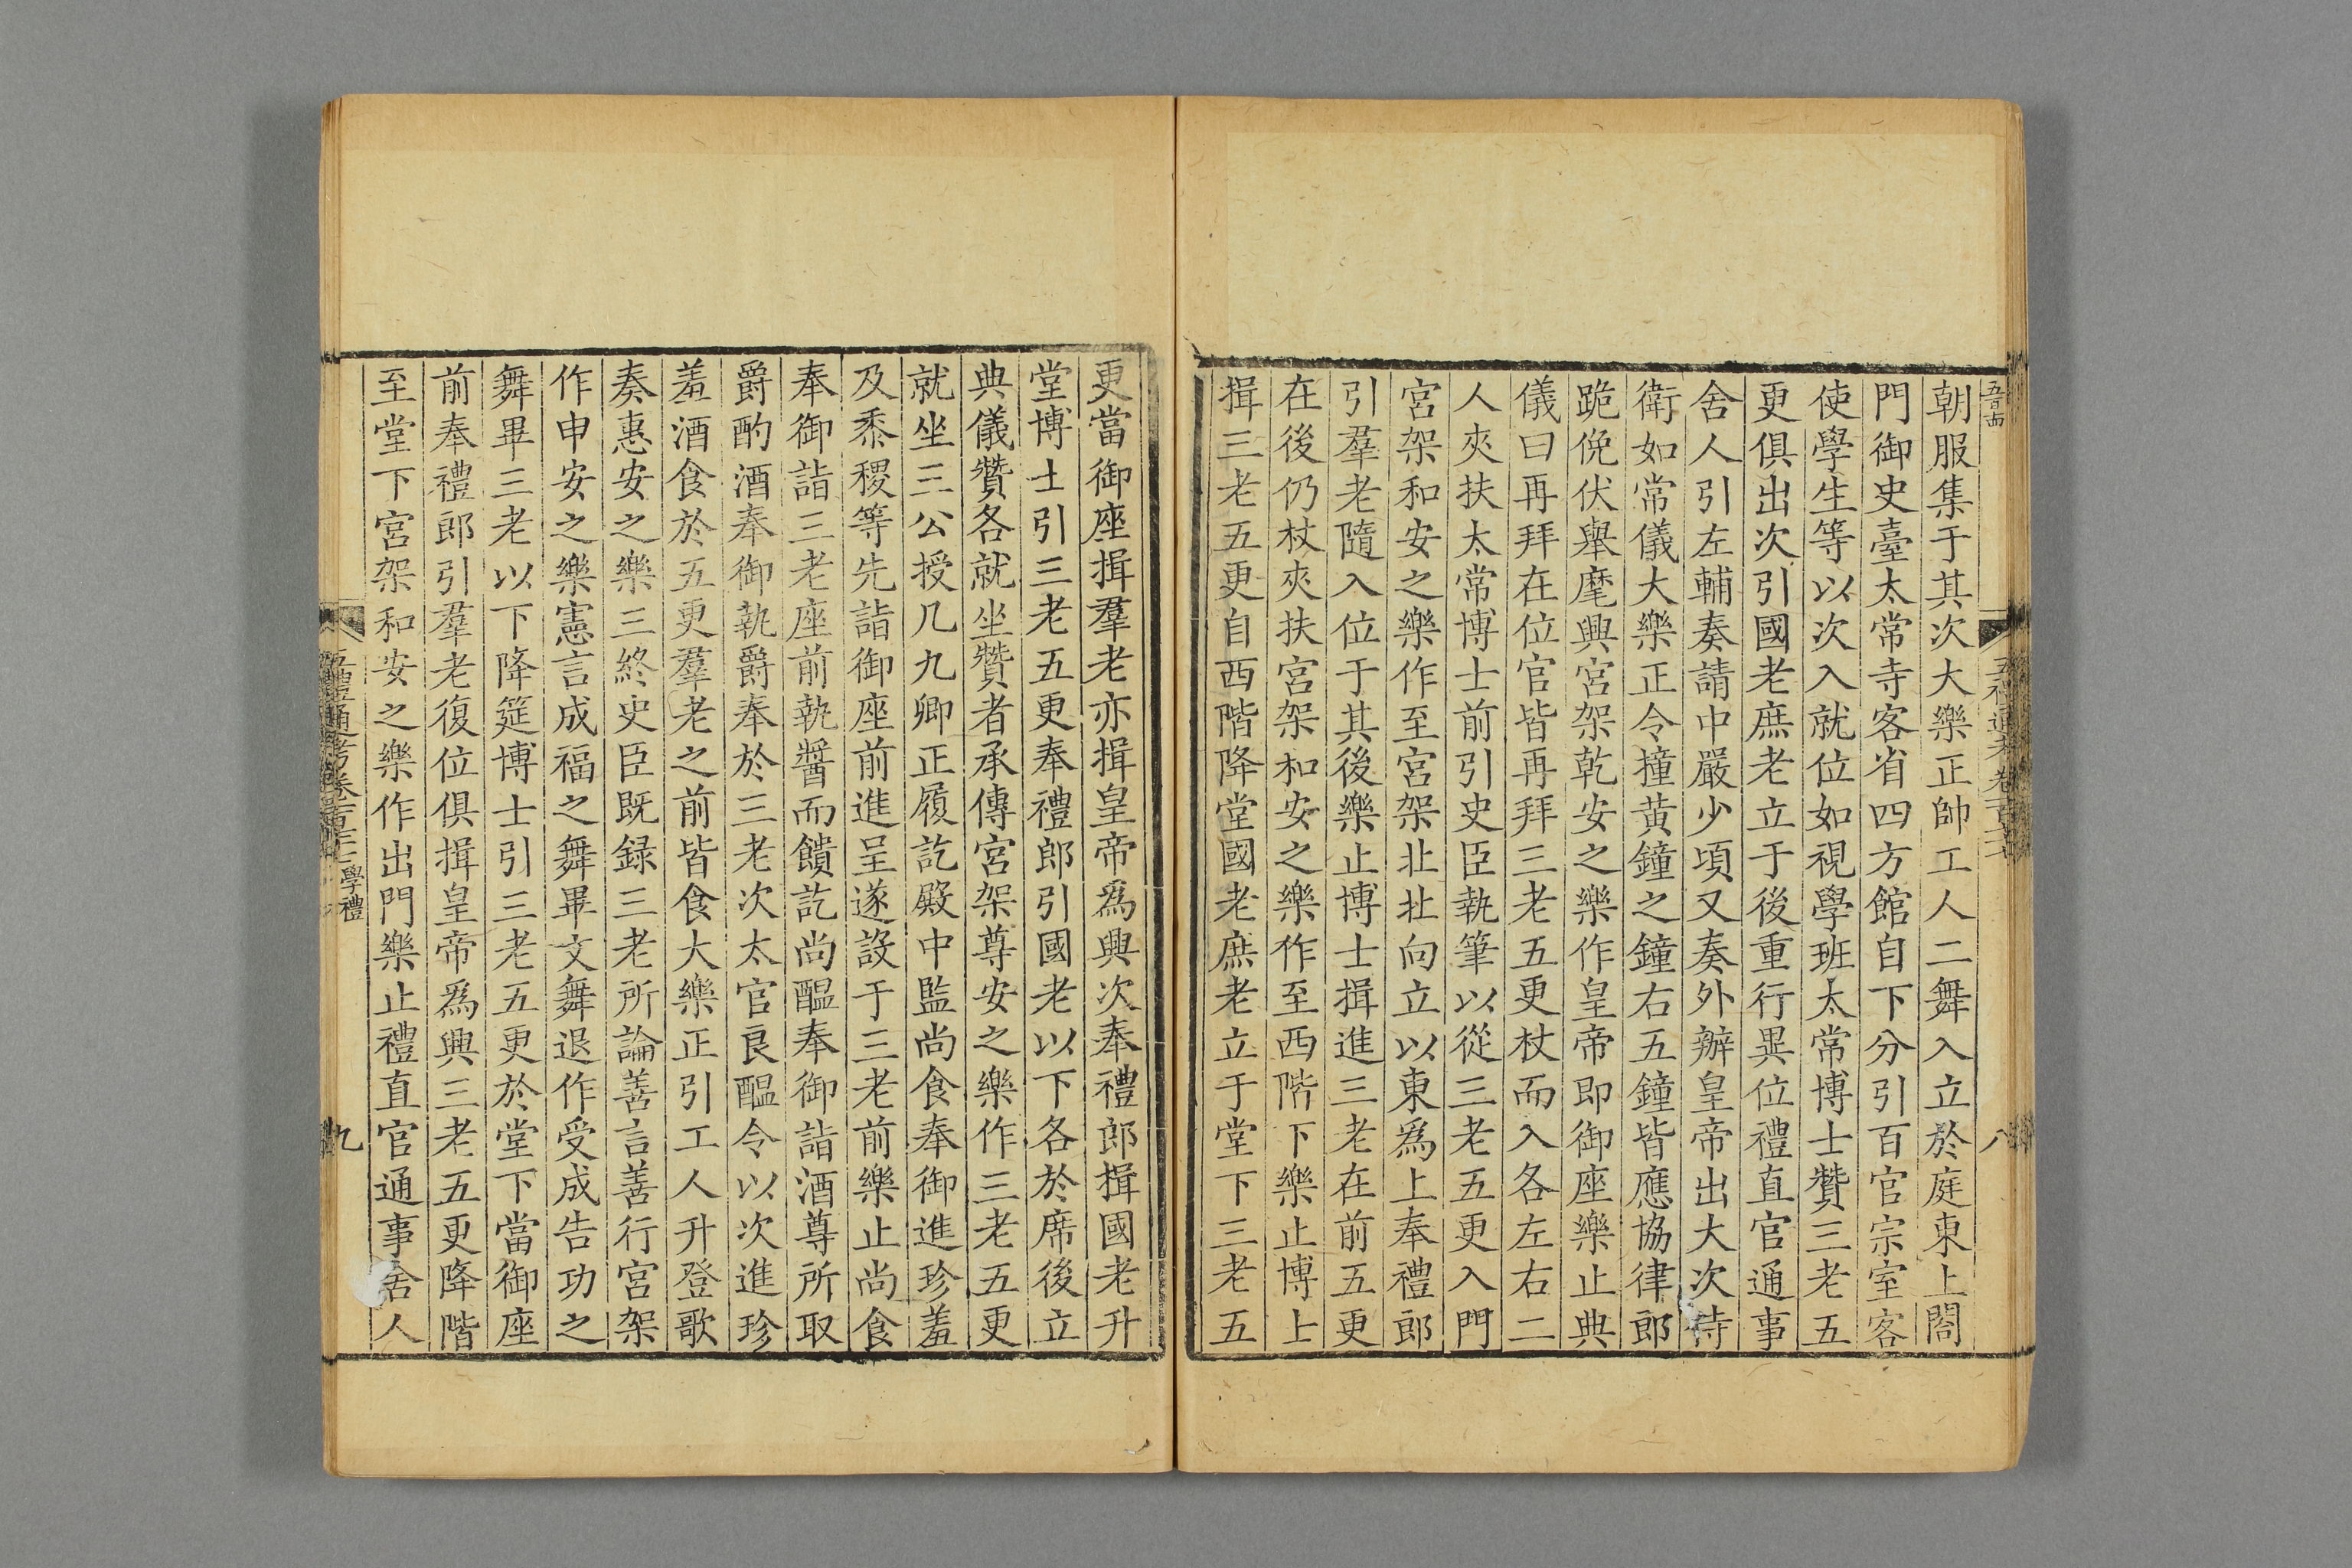 朝服集于其次大樂正帥工人二舞入立於庭東上閤
門御史臺太常寺客省四方館自下分引百官宗室客
使學生等以次入就位如視學班太常博士贊三老五
更俱出次引國老庶老立于後重行異位禮直官通事
舍人引左輔奏請中嚴少頃又奏外辦皇帝出大次侍
衛如常儀大樂正令撞黄鐘之鐘右五鐘皆應協律郎
跪俛伏舉麾興宮架乾安之樂作皇帝即御座樂止典
儀曰再拜在位官皆再拜三老五更杖而入各左右二
人夾扶太常博士前引史臣執筆以從三老五更入門
宮架和安之樂作至宮架北北向立以東爲上奉禮郎
引羣老隨入位于其後樂止博士揖進三老在前五更
在後仍杖夾扶宮架和安之樂作至西階下樂止博士
揖三老五更自西階降堂國老庶老立于堂下三老五
更當御座揖羣老亦揖皇帝爲興次奉禮郎揖國老升
堂博士引三老五更奉禮郎引國老以下各於席後立
典儀贊各就坐贊者承傳宮架尊安之樂作三老五更
就坐三公授几九卿正履訖殿中監尚食奉御進珍羞
及黍稷等先詣御座前進呈遂設于三老前樂止尚食
奉御詣三老座前執醬而饋訖尚醞奉御詣酒尊所取
爵酌酒奉御執爵奉於三老次太官良醞令以次進珍
羞酒食於五更羣老之前皆食大樂正引工人升登歌
奏惠安之樂三終史臣既録三老所論善言善行宮架
作申安之樂憲言成福之舞畢文舞退作受成告功之
舞畢三老以下降筵博士引三老五更於堂下當御座
前奉禮郎引羣老復位俱揖皇帝爲興三老五更降階
至堂下宮架和安之樂作出門樂止禮直官通事舍人
學禮
九